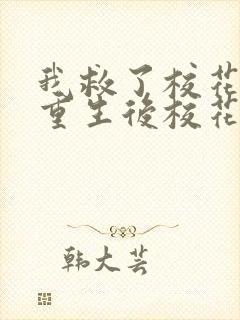 我救了校花
重生後校花
韩大芸